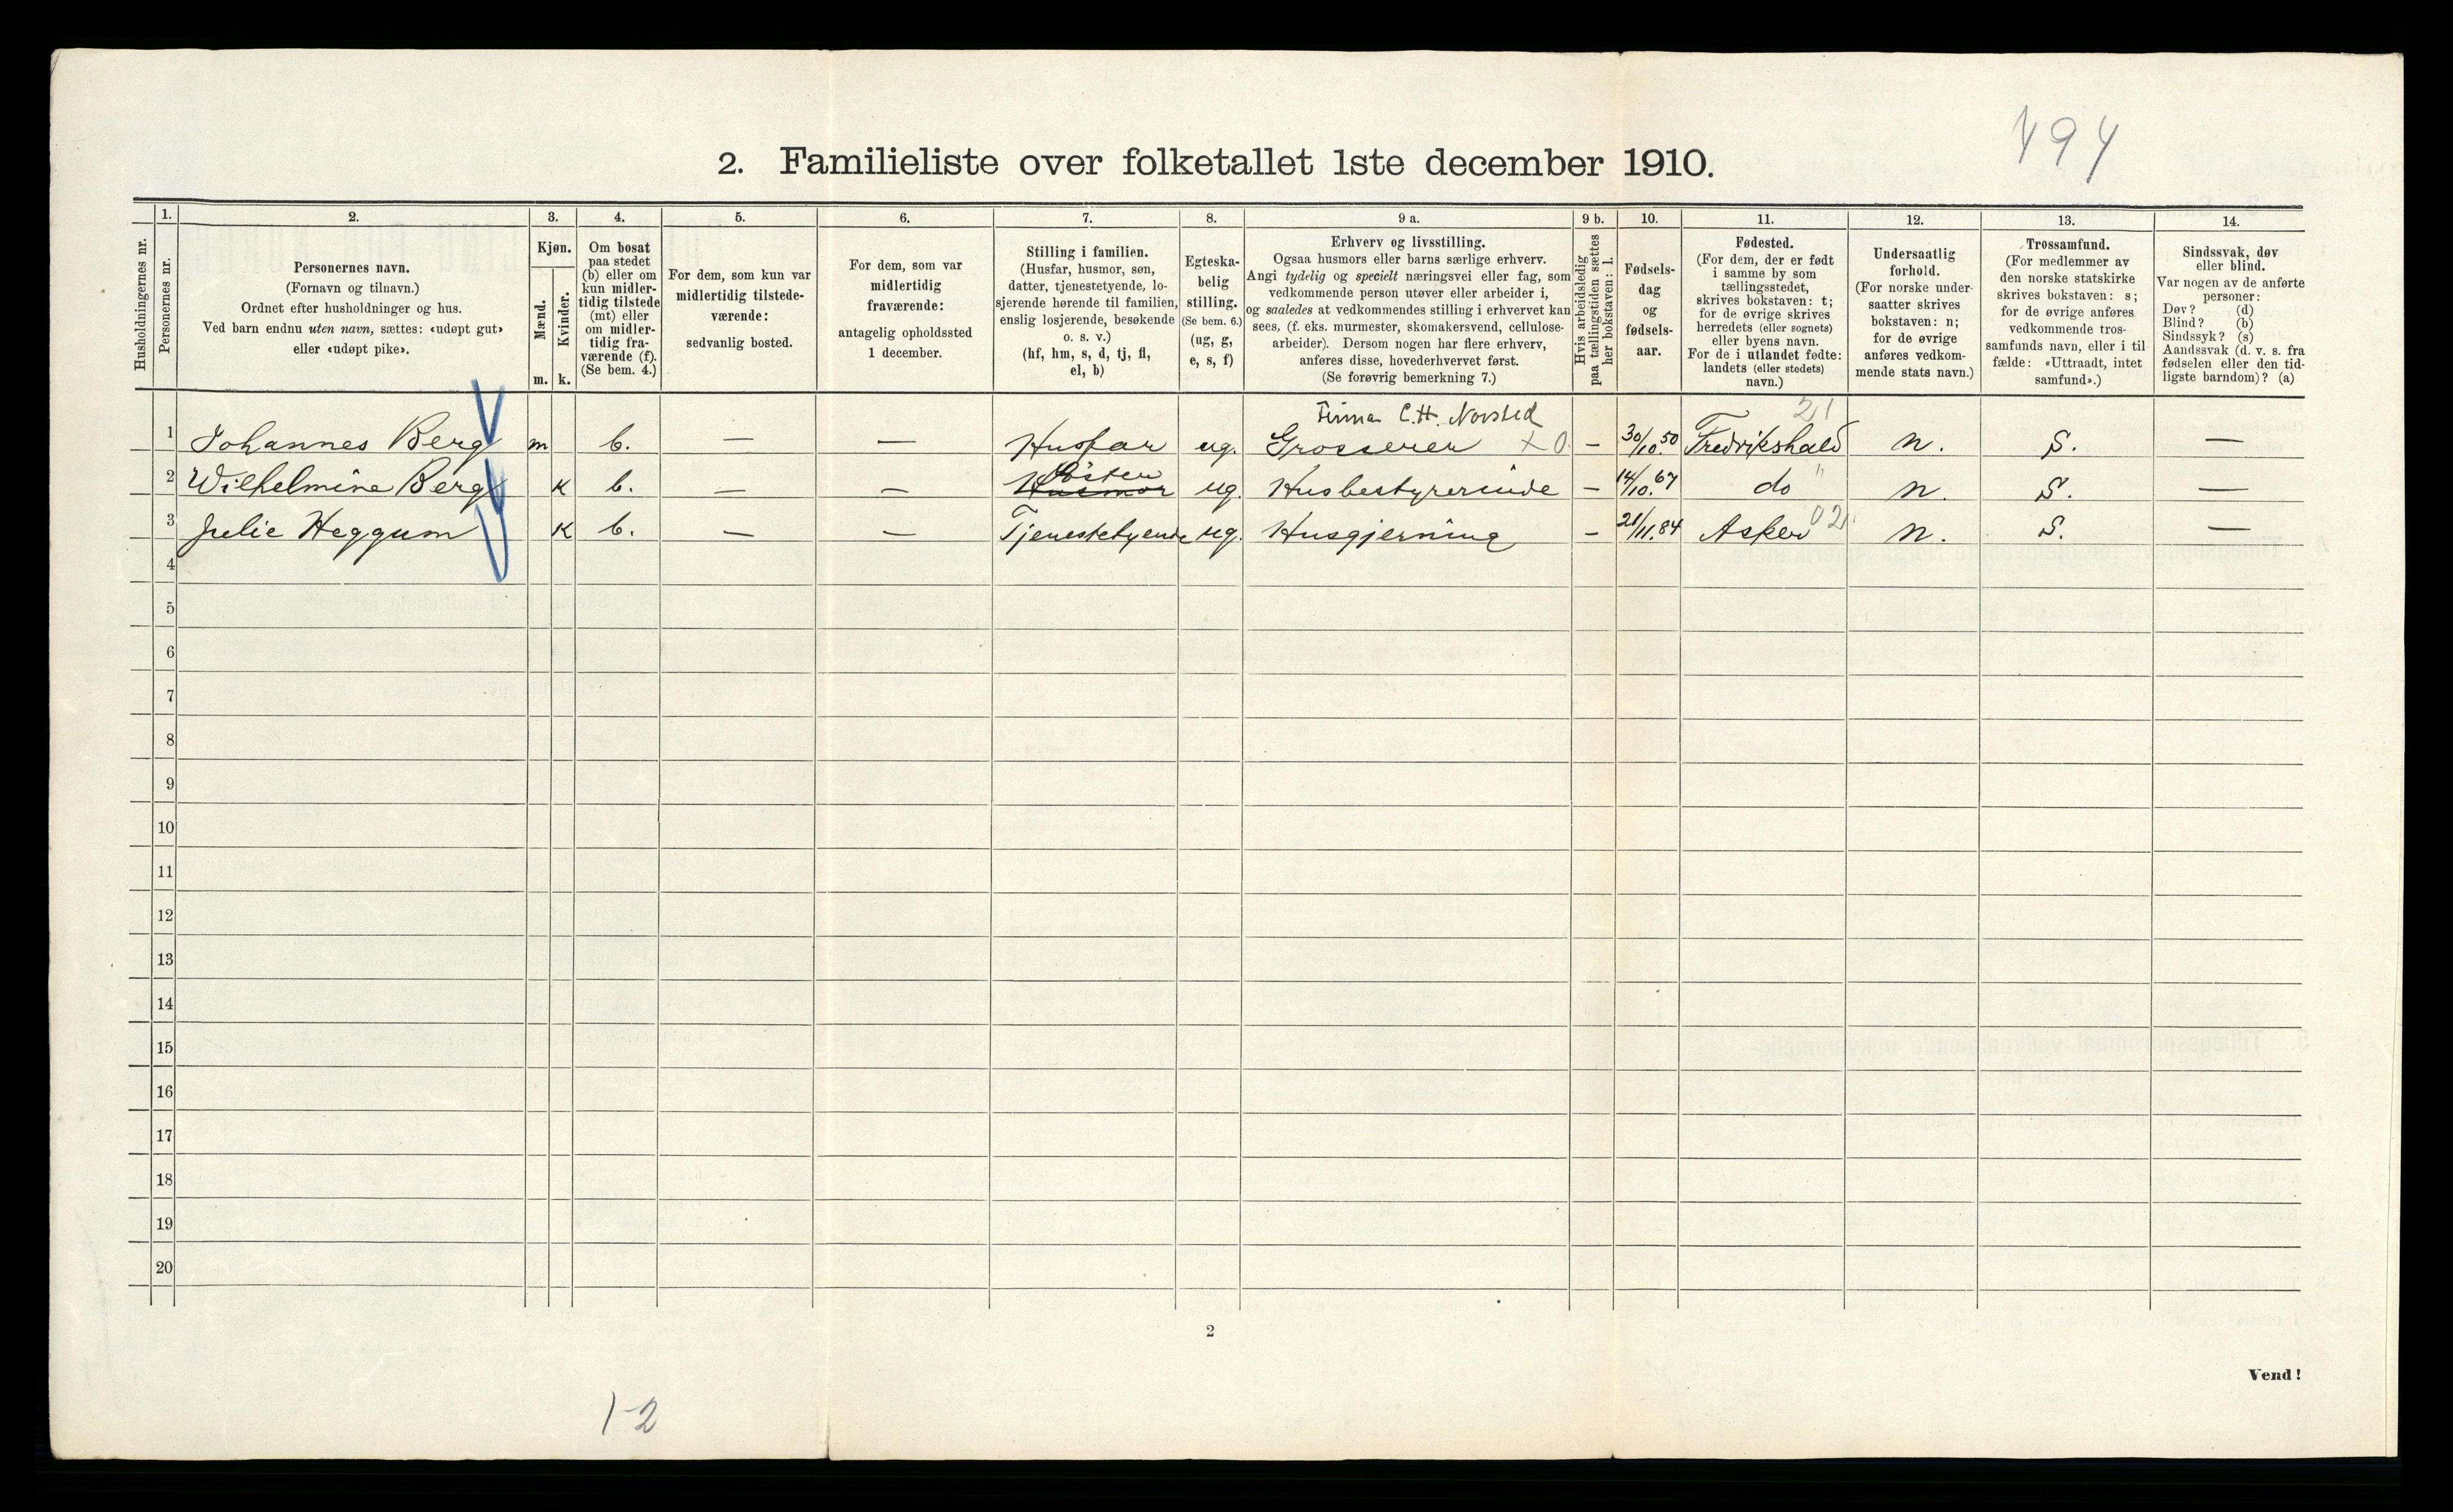 494
2. Familieliste over folketallet 1ste december 1910.
Husholdningernes nr.
1.
Personernes nr.
2.
Personernes navn.
(Fornavn og tilnavn.)
Ordnet efter husholdninger og hus.
Ved barn endnu uten navn, sættes: «udøpt gut»
eller «udøpt pike».
3.
Kjøn.
Mænd.
m.
Kvinder.
k.
4.
Om bosat
paa stedet
(b) eller om
kun midler-
tidig tilstede
(mt) eller
om midler-
tidig fra-
værende (f).
(Se bem. 4.)
5.
For dem, som kun var
midlertidig tilstede-
værende:
sedvanlig bosted.
6.
For dem, som var
midlertidig
fraværende:
antagelig opholdssted
1 december.
7.
Stilling i familien.
(Husfar, husmor, søn,
datter, tjenestetyende, lo-
sjerende hørende til familien,
enslig losjerende, besøkende
o. s. v.)
(hf, hm, s, d, tj, fl,
el, b)
8.
Egteska-
belig
stilling.
(Se bem. 6.)
(ug, g,
e, s, f)
9 a.
Erhverv og livsstilling.
Ogsaa husmors eller barns særlige erhverv.
Angi tydelig og specielt næringsvei eller fag, som
vedkommende person utøver eller arbeider i,
og saaledes at vedkommendes stilling i erhvervet kan
sees, (f. eks. murmester, skomakersvend, cellulose-
arbeider). Dersom nogen har flere erhverv,
anføres disse, hovederhvervet først.
(Se forøvrig bemerkning 7.)
9 b.
Hvis arbeidsledig
paa tællingstiden sættes
her bokstaven: l.
10.
Fødsels-
dag
og
fødsels-
aar.
11.
Fødested.
(For dem, der er født
i samme by som
tællingsstedet,
skrives bokstaven: t;
for de øvrige skrives
herredets (eller sognets)
eller byens navn.
For de i utlandet fødte:
landets (eller stedets)
navn.)
12.
Undersaatlig
forhold.
(For norske under-
saatter skrives
bokstaven: n;
for de øvrige
anføres vedkom-
mende stats navn.)
13.
Trossamfund.
(For medlemmer av
den norske statskirke
skrives bokstaven: s;
for de øvrige anføres
vedkommende tros-
samfunds navn, eller i til
fælde: «Uttraadt, intet
samfund».)
14.
Sindssvak, døv
eller blind.
Var nogen av de anførte
personer:
Døv? (d)
Blind? (b)
Sindssyk? (s)
Aandssvak (d. v. s. fra
fødselen eller den tid-
ligste barndom)? (a)
Firma C.H. Norsted 21
1 Johannes Berg m b. — — Husfar ug. Grosserer X 0 – 30/10.50 Fredrikshald n. S. —
Søster
2 Wilhelmine Berg K b. — — Husmor ug. Husbestyrerinde – 14/10.67 do " n. S. —
3 Julie Heggum K b. — — Tjenestetyende ug. Husgjerning – 21/11.84 Asker 02 n. S. —
4
5
6
7
8
9
10
11
12
13
14
15
16
17
18
19
20
2
Vend!
1-2